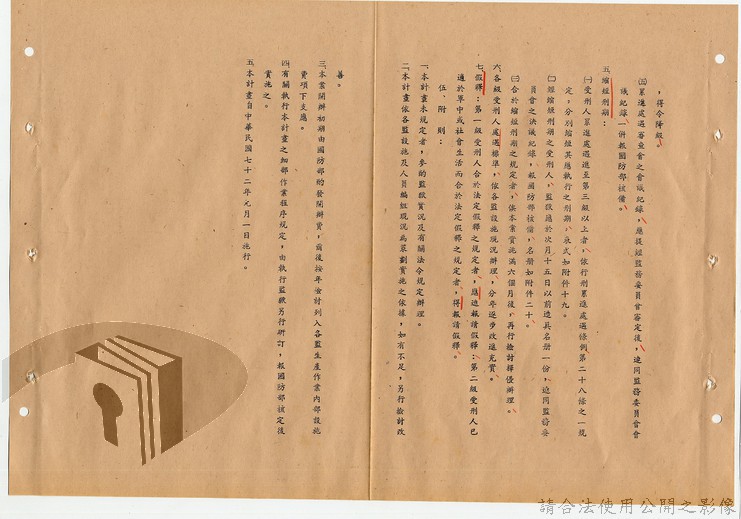 ，得令降級。
㈣累進處遇審查會之會議紀錄，應提經監務委員會審定後，連同監務委員會會
議紀錄一併報國防部核備。
五縮短刑期：
㈠受刑人累進處遇進至第三級以上者，依行刑累進處遇條例第二十八條之一規
定，分別縮短其應執行之刑期，表式如附件十九。
㈡經縮短刑期之受刑人，監獄應於次月十五日以前造具名冊一份，連同監務委
員會之決議紀錄，報國防部核備，名冊如附件二十。
㈢合於縮短刑期之規定者，俟本案實施滿六個月後，再行檢討擇優辦理。
六各級受刑人處遇標準，依各監設施現況辦理，分年逐步改進充實。
七假釋：第一級受刑人合於法定假釋之規定者，應速報請假釋；第二級受刑人已
適於軍中或社會生活而合於法定假釋之規定者，得報請假釋。
伍、附則：
一本計畫未規定者，參酌監獄實況及有關法令規定辦理。
二本計畫依各監設施及人員編組現況為策劃實施之依據，如有不足，另行檢討改
善。
三本案開辦初期由國防部酌發開辦費，爾後按年檢討列入各監生產作業內部設施
費項下支應。
四有關執行本計畫之細部作業程序規定，由執行監獄另行研訂，報國防部核定後
實施之。
五本計畫自中華民國七十二年元月一日施行。
請合法使用公開之影像